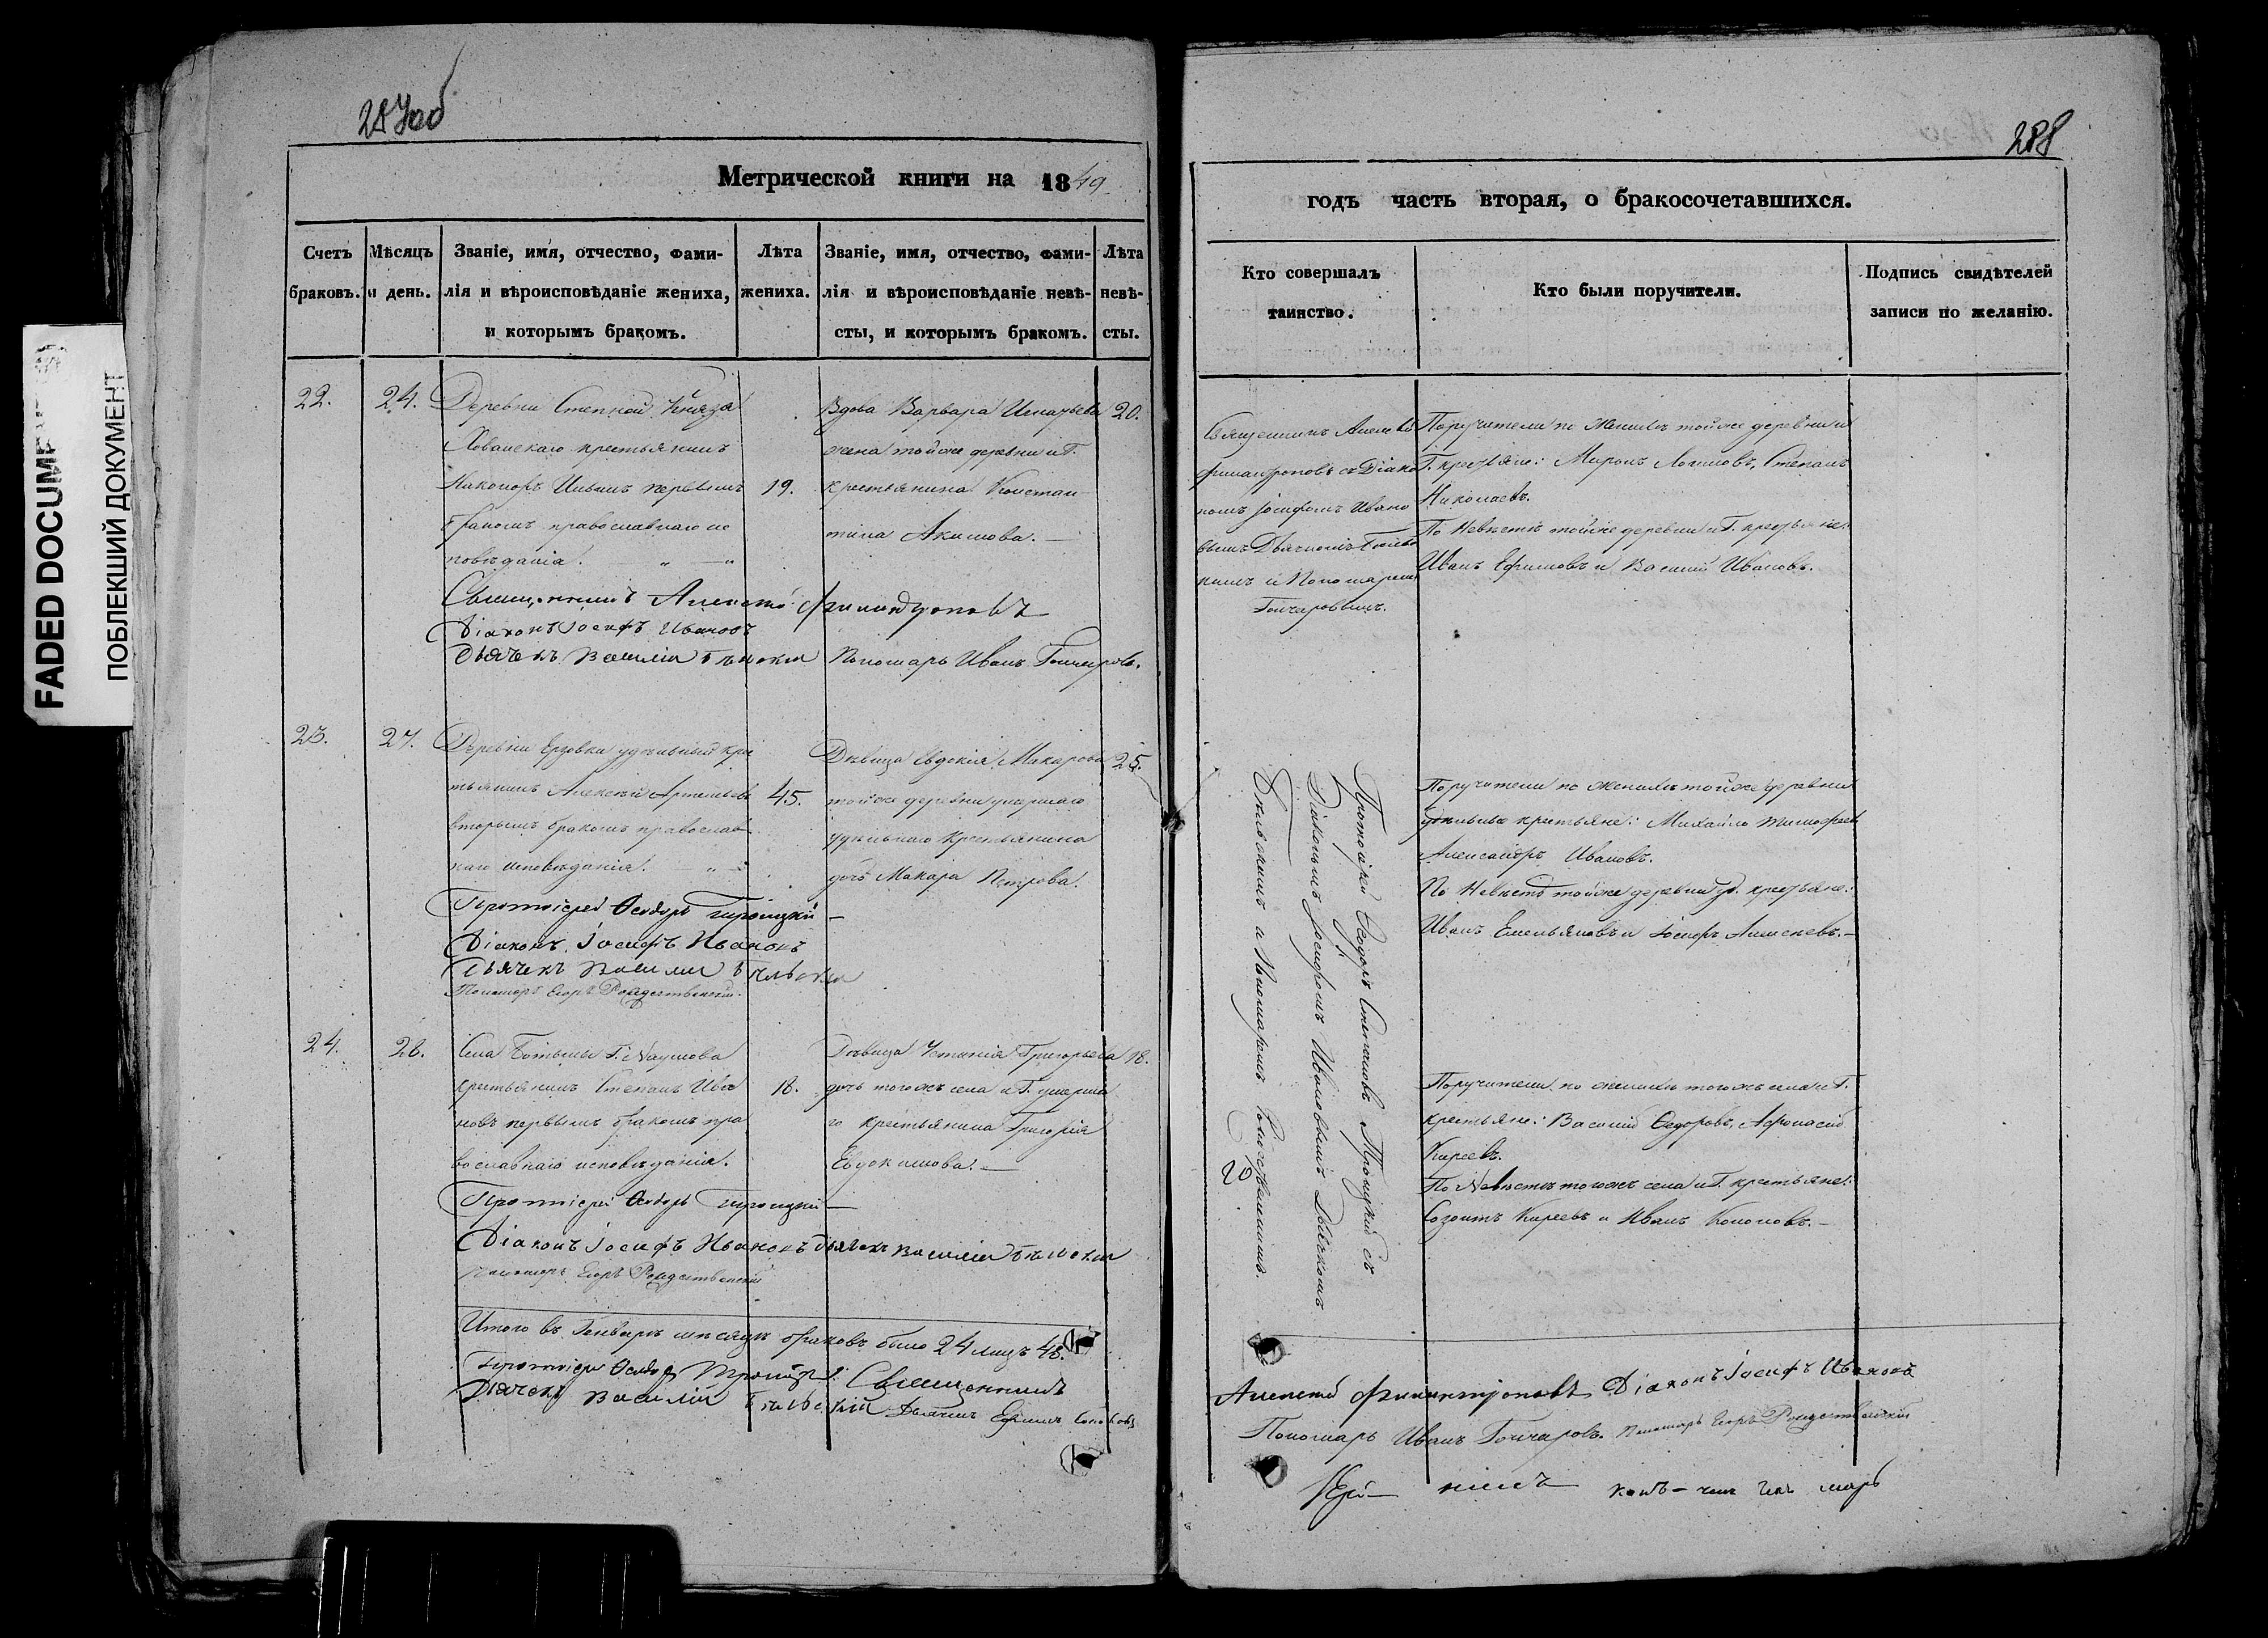 287об
Метрической книги на 1849
Счетъ браковъ.
Мѣсяцъ и день.
Званіе, имя, отчество, фами-
лія и вѣроисповѣданіе жениха,
и которымъ бракомъ.
Лѣта
жениха.
Званіе, имя, отчество, фами-
лія и вѣроисповѣданіе невѣ-
сты, и которымъ бракомъ.
Лѣта
невѣ-
сты.
22.
24.
Деревни Степной Князя
Хованскаго крестьянинъ
Никаноръ Ильинъ первымъ
бракомъ православнаго ис
повѣданія.
19.
Вдова Варвара Игнатьева
жена тойже деревни и Г.
крестьянина Констан
тина Акимова.
20.
Священникъ Алексѣй Филантроповъ
Діаконъ Іосифъ Ивановъ
Дьячекъ Василій Бѣльскій
Пономарь Иванъ Гончаровъ.
23.
27.
Деревни Ерзовки удѣльный кре
стьянинъ Алексѣй Артемьевъ
вторымъ бракомъ православ
наго исповѣданія.
45.
Дѣвица Евдокія Макарова
тойже деревни умершаго
удѣльнаго крестьянина
дочь Макара Петрова.
25.
Протоіерей Ѳеодоръ Троицкій
Діаконъ Іосифъ Ивановъ
Дьячекъ Василій Бѣльскій
Пономарь Егоръ Рождественскій.
24.
28.
Села Ботьмы Г. Наумова
крестьянинъ Степанъ Ива
новъ первымъ бракомъ пра
вославнаго исповѣданія.
18.
Дѣвица Устинія Григорьева
дочь тогожъ села и Г. умерша
го крестьянина Григорія
Евдокимова.
18.
Протоіерей Ѳеодоръ Троицкій
Діаконъ Іосифъ Ивановъ Дьячекъ Василій Бѣльскій
Пономарь Егоръ Рождественскій
Итого въ Генварѣ мѣсяцѣ браковъ было 24 лицъ 48.
Протоіерей Ѳеодоръ Троицкій. Священникъ
Дьячекъ Василій Бѣльскій Дьячекъ Ефимъ
288
годъ часть вторая, о бракосочетавшихся.
Кто совершалъ
таинство.
Кто были поручители.
Подпись свидѣтелей
записи по желанію.
Священникъ Алексѣй
Филантроповъ съ Діако
номъ Іосифомъ Ивано
вымъ Дьячкомъ Бѣль
скимъ и Пономаремъ
Гончаровымъ.
Поручители по женихѣ тойже деревни и
Г. крестьяне: Миронъ Логиновъ, Степанъ
Николаевъ.
По Невѣстѣ тойже деревни и Г. крестьяне:
Иванъ Ефимовъ и Василій Ивановъ.
Протоіерей Ѳеодоръ Степановъ Троицкій съ
Діакономъ Іосифомъ Ивановымъ Дьячкомъ
Бѣльскимъ и Пономаремъ Рождественскимъ.
Поручители по женихѣ тойже деревни
удѣльные крестьяне: Михайло Тимофеевъ
Александръ Ивановъ.
По Невѣстѣ тойже деревни уд. крестьяне:
Иванъ Емельяновъ и Іосифъ Алексѣевъ.
Поручители по женихѣ тогожъ села и Г.
крестьяне: Василій Ѳедоровъ, Афонасій
Киреевъ.
По Невѣстѣ тогожъ села и Г. крестьяне:
Созонтъ Киреевъ и Иванъ Кононовъ.
20
Алексѣй Филантроповъ Діаконъ Іосифъ Ивановъ
Пономарь Иванъ Гончаровъ. Пономарь Егоръ Рождественскій